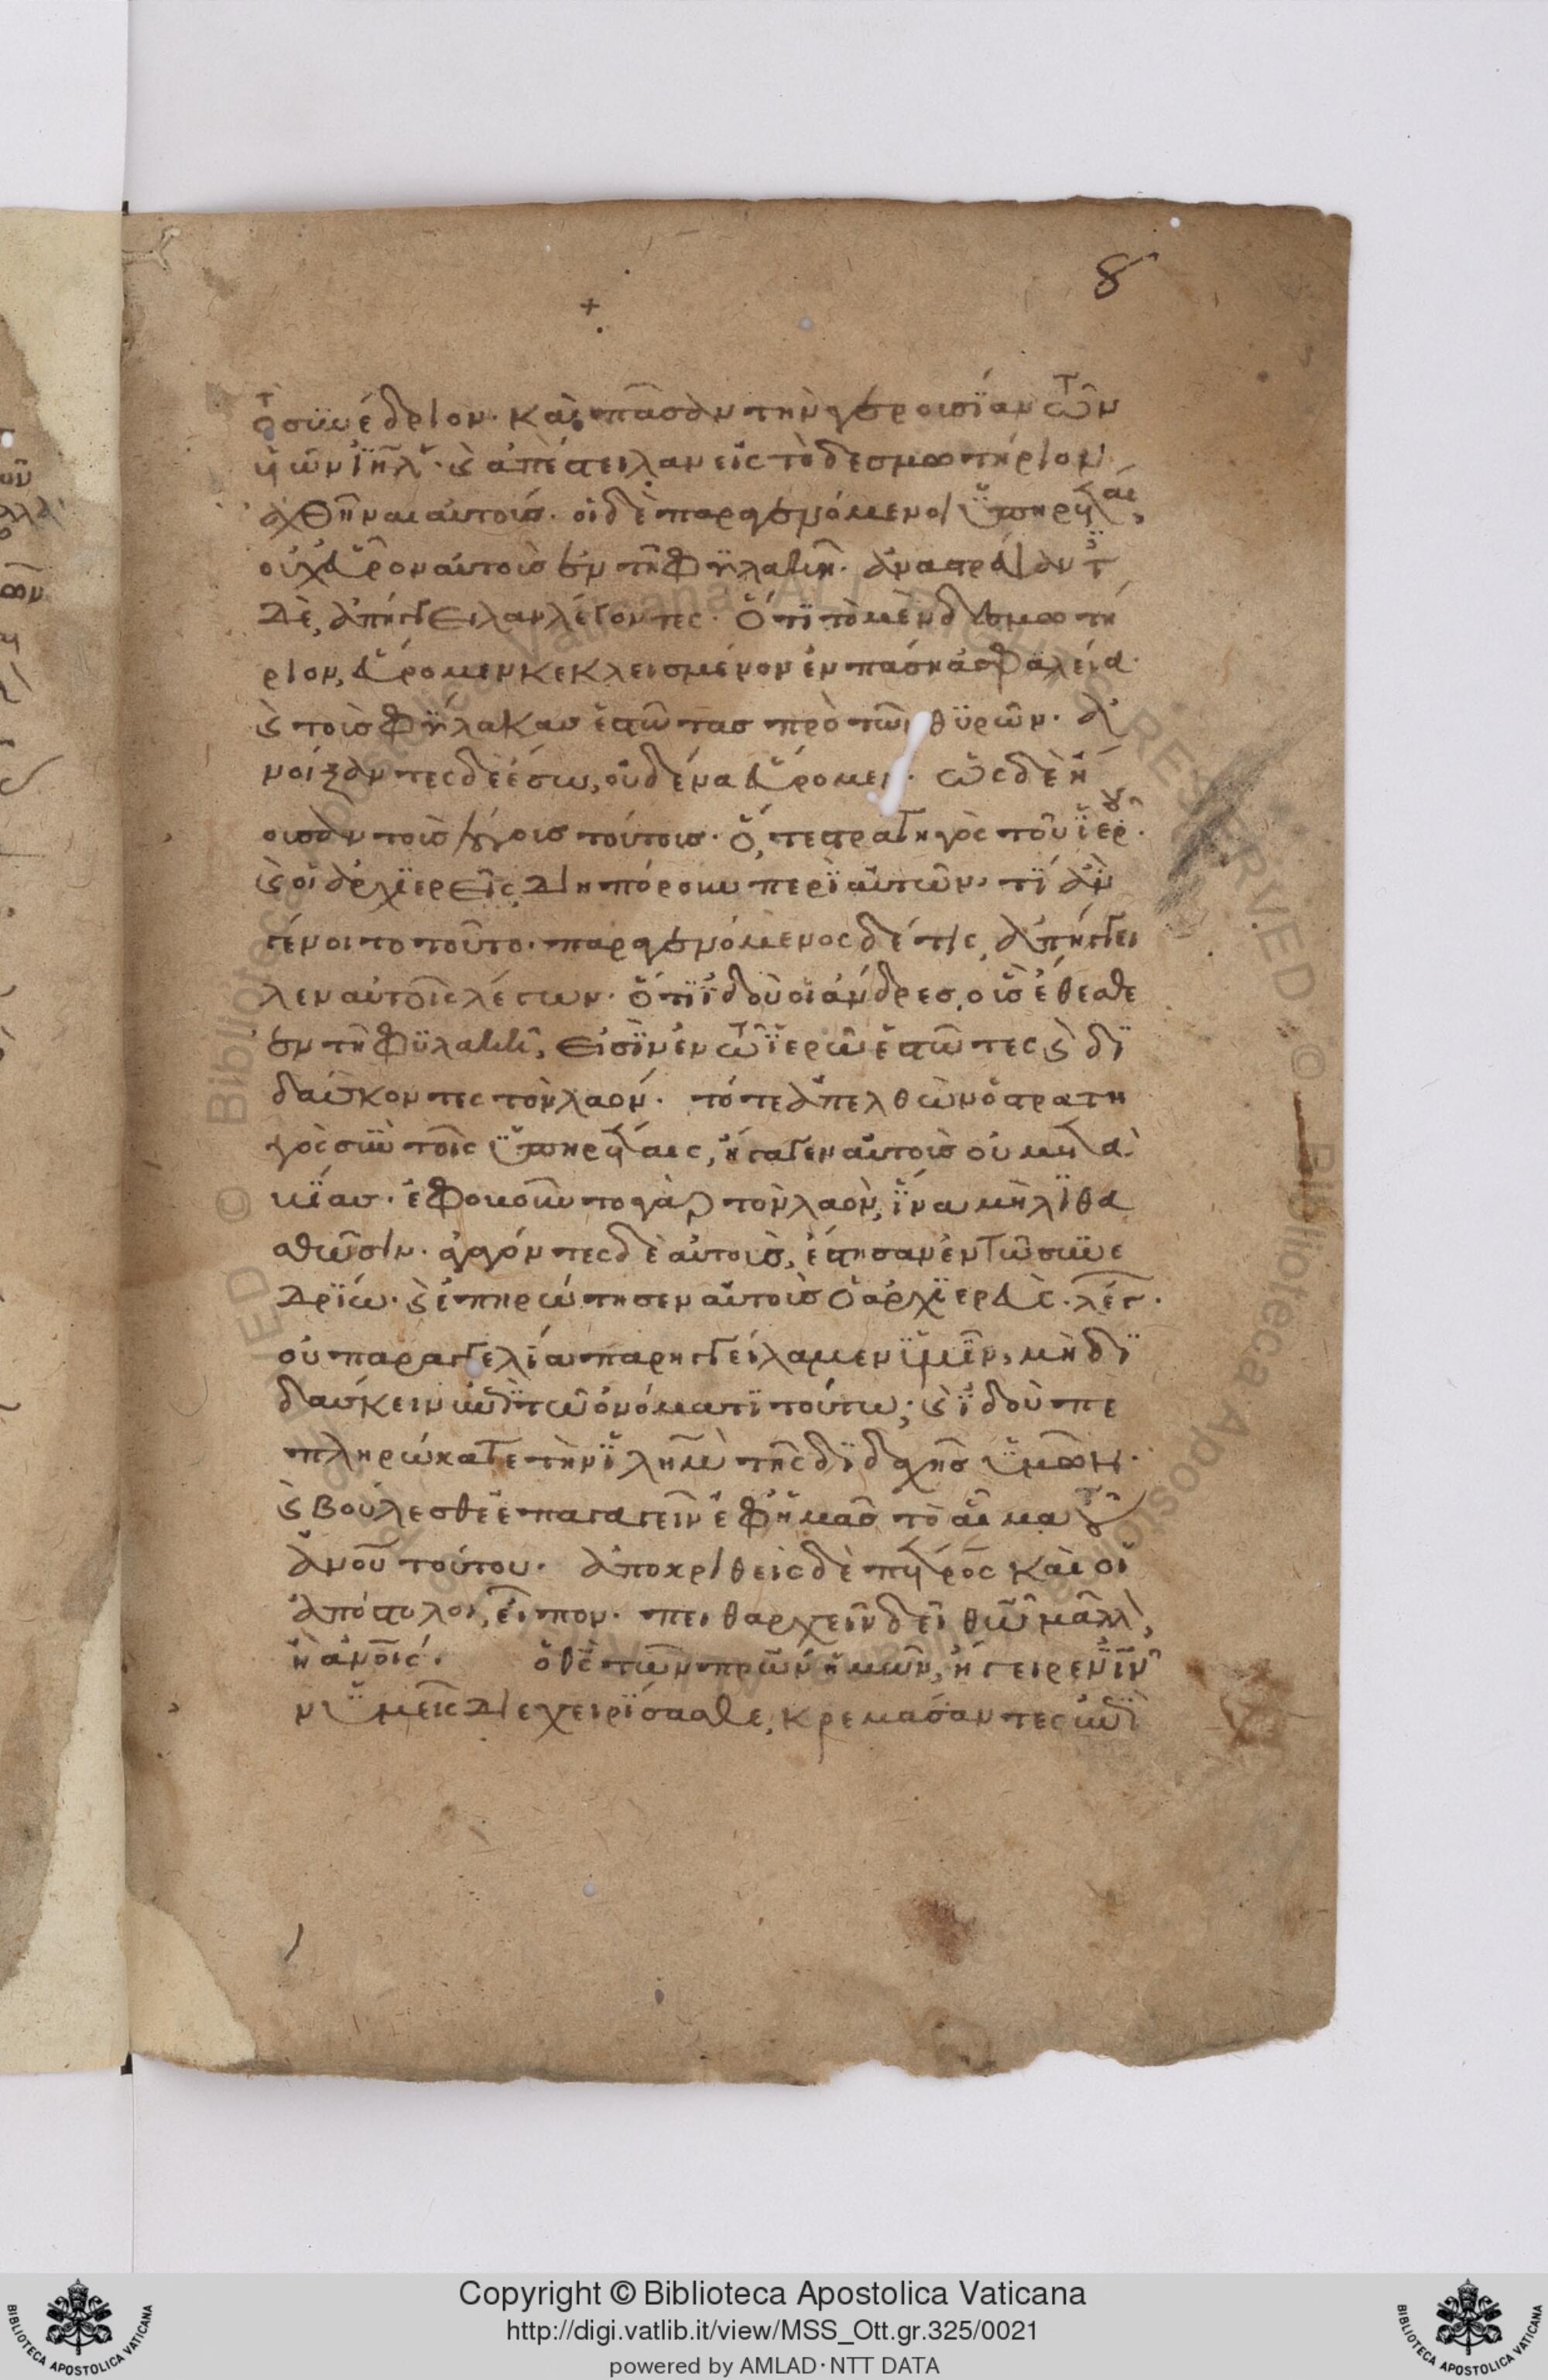 8
τὸ συνέδριον· καὶ πᾶσαν τὴν γερουσΐαν τῶν
ϋἱῶν ἰη̅λ· ϛ ἀπέστειλαν εἰς τὸ δεσμωτήριον
ἀχθῆναι αὐτούσ· οἱ δὲ παραγενόμενοι ὑπηρέται,
οὐχ εὗρον αὐτοὺσ ἐν τῆ φϋλακῆ· ἀναστρέψαντ
δὲ, ἀπήγγειλαν λέγοντες· ὅτϊ τὸ μὲν δεσμωτή
ριον, εὕρομεν κεκλεισμένον ἐν πάσῃ ἀσφαλεία·
ϛ τοὺσ φύλακασ ἑστῶτασ πρὸ τῶν θϋρῶν· ἀ
νοίξαντες δὲ ἔσω, οὐδένα εὕρομεν· ὡς δὲ ἤ
κουσαν τοὺσ λόγουσ τούτουσ· ὅ, τε στρατηγὸς τοῦ ϊεροῦ·
ϛ οἱ ἀρχϊερεῖς, διηπόρουν περϊ αὐτῶν· τϊ ἂν
γένοιτο τοῦτο· παραγενόμενος δέ τις, ἀπήγγει
λεν αὐτοῖς λέγων· ὅτϊ ϊδοὺ οἱ ἄνδρεσ, οὓσ ἔθεσθε
ἐν τῆ φϋλακῆ, εἰσϊν ἐν τῶ ϊερῶ ἑστῶτες ϛ δϊ
δάσκοντες τὸν λαόν· τότε ἀπελθὼν ὁ στρατη
γὸς σὺν τοῖς ὑπηρέταις, ἤγαγεν αὐτοὺσ οὐ μετὰ
βίασ· ἐφοβοῦντο γὰρ τὸν λαὸν, ϊνα μὴ λϊθα
σθῶσιν· ἀγαγόντες δὲ αὐτοὺσ, ἔστησαν ἐν τῶ συνε
δρϊω· ϛ ἐπηρώτησεν αὐτοὺσ ὁ ἀρχϊερεὺς· λέγ·
οὐ παραγγελίᾳ παρηγγείλαμεν ϋμῖν, μὴ δϊ
δάσκειν ἐπὶ τῶ ὀνόματϊ τούτω; ϛ ϊδοὺ πε
πληρώκατε τὴν ϊλη̅μ τῆς δϊδαχῆσ ὑμῶν·
ϛ βούλεσθε ἐπαγαγεῖν ἐφ ἡμᾶσ τὸ αἷμα τοῦ
ἀνοῦ τούτου· ἀποκριθεὶς δὲ πέτρος καὶ οἱ
ἀπόστολοι, εἶπον· πειθαρχεῖν δεῖ θῶ μᾶλλ,
ἢ ἀνοις· ὁ θς τῶν πρων ἡμῶν, ἤγειρεν ιν
ν ὑμεῖς διεχειρϊσασθε, κρεμάσαντες ἐπϊ
Copyright © Biblioteca Apostolica Vaticana
http://digi.vatlib.it/view/MSS_Ott.gr.325/0021
powered by AMLAD·NTT DATA